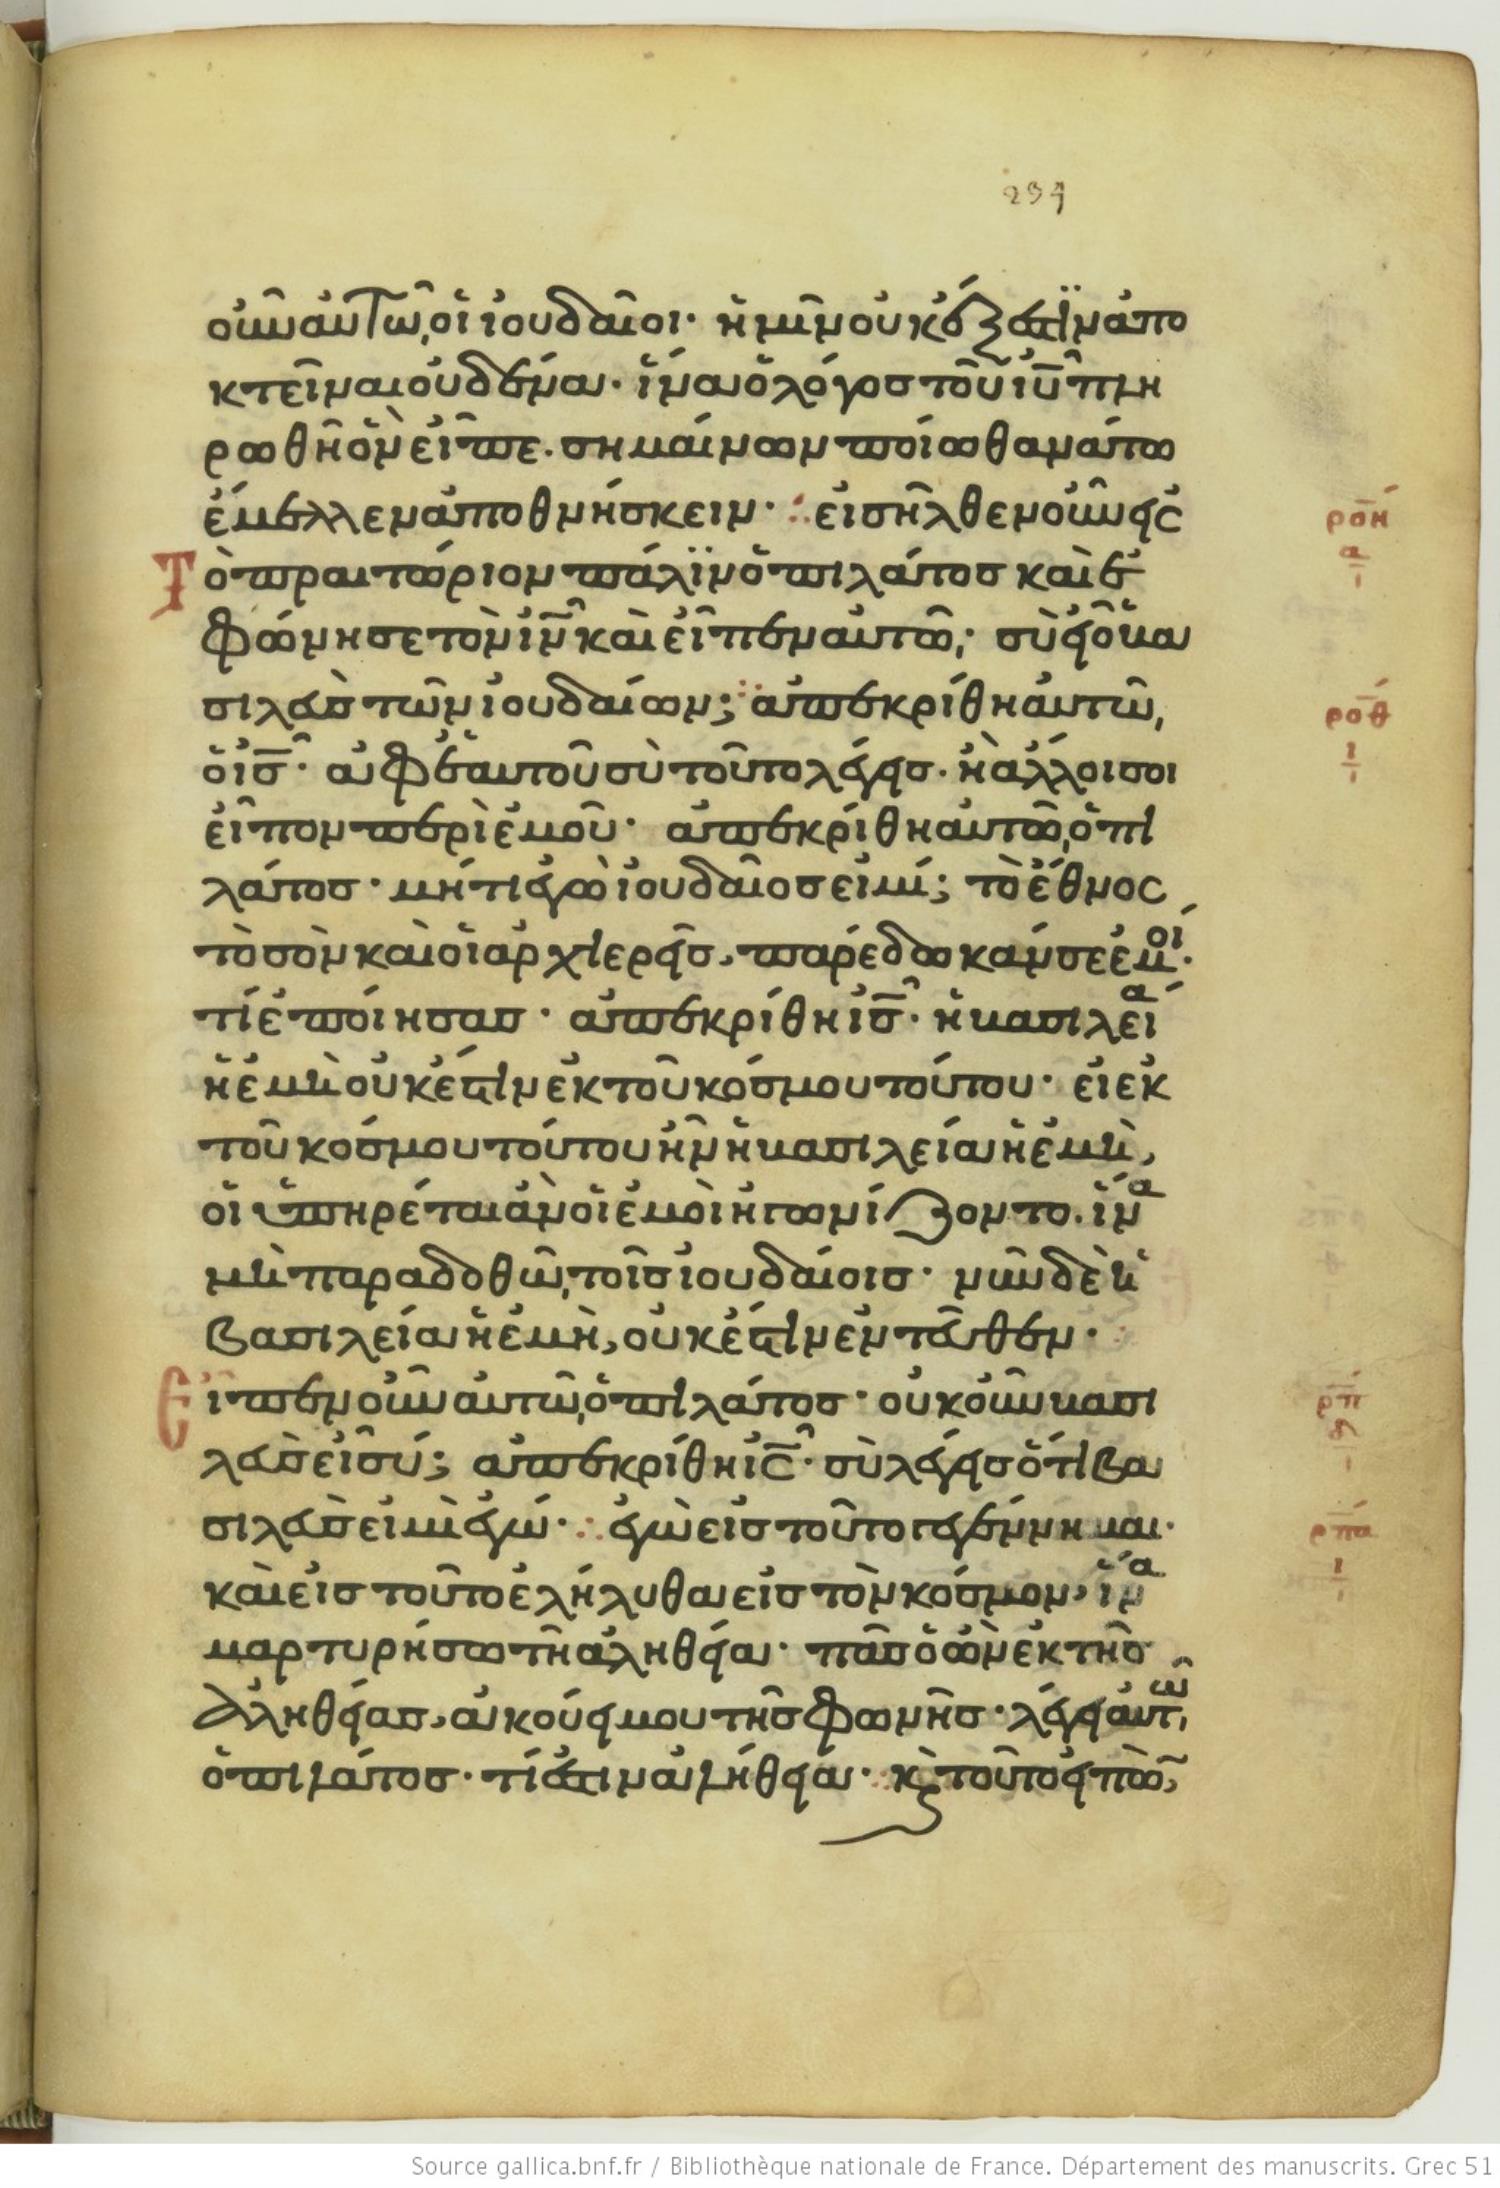 294
οὖν αὐτῶ, οἱ ἰουδαῖοι· ἡμῖν οὐκ ἔξεστϊν ἀπο
κτεῖναι οὐδένα· ἵνα ὁ λόγος τοῦ ἰῦ πλη
ρωθῆ ὃν εἶπε. σημαίνων ποίω θανάτω
ἔμελλεν ἀποθνήσκειν· ∴ εἰσῆλθεν οὖν εἰς
Τὸ πραιτώριον πάλϊν ὁ πιλάτος καὶ ἐ
φώνησε τὸν ἰν καὶ εἶπεν αὐτῶ, σὺ εἶ ὁ βα
σιλεὺς τῶν ἰουδαίων; ἀπεκρίθη αὐτῶ,
ὁ ἰς· ἀφ ἑαυτοῦ σὺ τοῦτο λέγεις. ἢ ἄλλοι σοι
εἶπον περὶ ἐμοῦ· ἀπεκρίθη αὐτῶ, ὁ πι
λάτος· μήτι ἐγὼ ἰουδαῖος εἰμί; τὸ ἔθνος
τὸ σὸν καὶ οἱ ἀρχιερεῖς, παρέδωκάν σε ἐμοί·
τί ἐποίησας· ἀπεκρίθη ἰς· ἡ βασιλεία
ἡ ἐμὴ οὐκ ἔστιν ἐκ τοῦ κόσμου τούτου· εἰ ἐκ
τοῦ κόσμου τούτου ἦν ἡ βασιλεία ἡ ἐμὴ,
οἱ ὑπηρέται ἀν οἱ ἐμοὶ ἠγωνίζοντο. ἵνα
μὴ παραδοθῶ, τοῖς ἰουδαίοις· νῦν δὲ ἡ
βασιλεία ἡ ἐμὴ, οὐκ ἔστιν ἐνταῦθεν·
Εἶπεν οὖν αὐτῶ, ὁ πιλάτος· οὐκοῦν βασι
λεὺς εἶ σύ; ἀπεκρίθη ἰς· σὺ λέγεις ὅτι βα
σιλεὺς εἰμὶ ἐγώ· ∴ ἐγὼ εἰς τοῦτο γεγέννημαι·
καὶ εἰς τοῦτο ἐλήλυθα εἰς τὸν κόσμον, ἵνα
μαρτυρήσω τῆ ἀληθεία· πᾶς ὁ ὢν ἐκ τῆς
ἀληθείας, ἀκούει μου τῆς φωνῆς· λέγει αὐτῶ,
ὁ πιλάτος· τί ἐστιν ἀλήθεια· κὶ τοῦτο εἰπὼν,
ροη
α
ροθ
ι
ρπ
ρπα
ι
Source gallica.bnf.fr / Bibliothèque nationale de France. Département des manuscrits. Grec 51